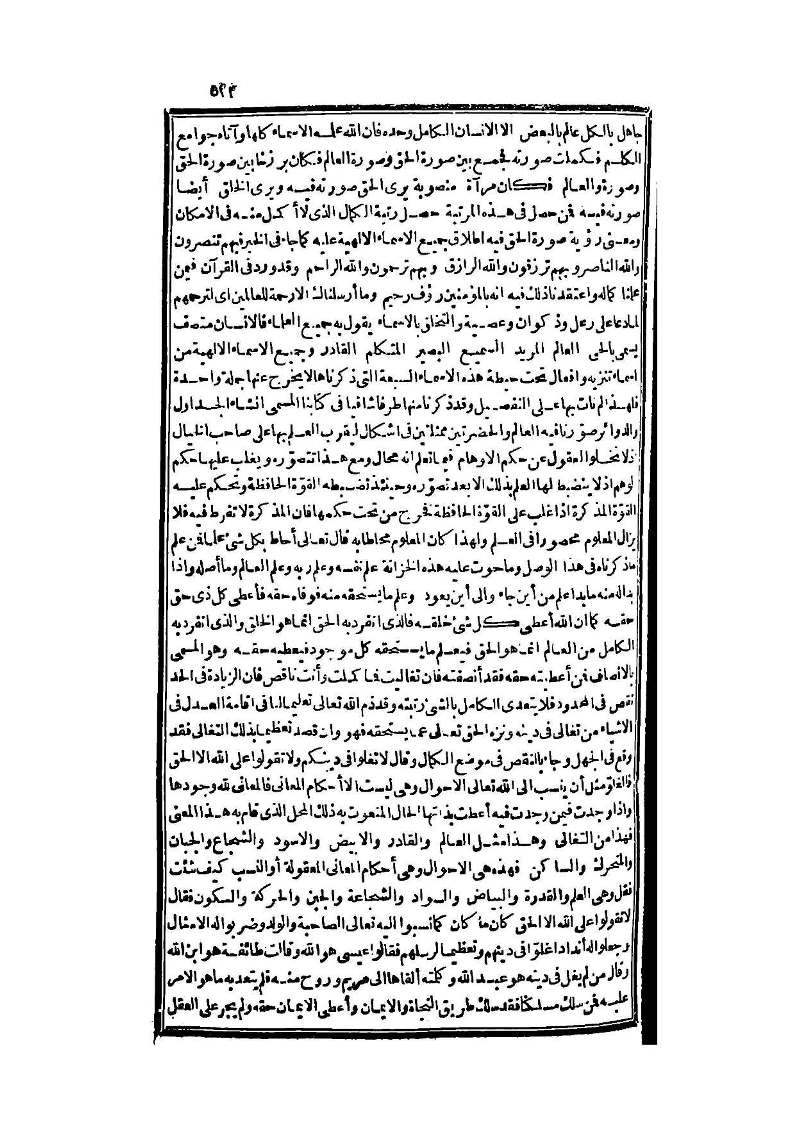 ٥٢٣
جاهل بالكل عالم بالبعض الا الانسان الكامل وحده فان الله علمه الاسماء كلها وآتاه جوامع
الكلم فكملت صورته فجمع بين صورة الحق وصورة العالم فكان برزخا بين صورة الحق
وصورة والعالم فكان مرآة منصوبة يرى الحق صورته فيه ويرى الخلق أيضا
صورته فيه فمن حصل فى هذه المرتبة حصل رتبة الكمال الذى لا أكمل منه فى الامكان
ومعنى رؤية صورة الحق فيه اطلاق جميع الاسماء الالهية عليه كما جاء فى الخبر فبهم تنصرون
والله الناصر وبهم ترزقون والله الرازق وبهم ترحمون والله الراحم وقد ورد فى القرآن فيمن
علمنا كماله واعتقدنا ذلك فيه انه بالمؤمنين رؤف رحيم وما أرسلناك الا رحمة للعالمين اى لترحمهم
لما دعا على رعل وذكوان وعصية والتخلق بالاسماء يقول به جميع العلماء فالانسان متصف
يسمى بالحى العالم المريد السميع البصير المتكلم القادر وجميع الاسماء الالهية من
اسماء تنزيه وافعال تحت حيطة هذه الاسماء السبعة التى ذكرناها لا يخرج عنها جملة واحدة
فلهذا لم نأت بها على التفصيل وقد ذكرنا منها طرفا شافيا فى كتابنا المسمى انشاء الجداول
والدوائر صوّرنا فيه العالم والحضرتين ممثلتين فى اشكال ليقرب العلم بها على صاحب الخيال
اذ لا تخلو العقول عن حكم الاوهام فيما تعلم انه محال ومع هذا تتصوّره ويغلب عليها حكم
لوهم اذ لا ينضبط لها العلم بذلك الا بعد تصوّره وحينئذ تضبطه القوّة الحافظة وتحكم عليه
القوّة المذكرة اذا غلب على القوّة الحافظة فخرج من تحت حكمها فان المذكرة لا تفرط فيه فلا
يزال المعلوم محصورا فى العلم ولهذا كان المعلوم محاطا به قال تعالى أحاط بكل شئ علما فمن علم
ماذكرناه فى هذا الوصل وما حوت عليه هذه الخزانة علم نفسه وعلم ربه وعلم العالم وما أصله واذا
بدا له منه ما يبدا علم من أين جاء والى أين يعود وعلم ما يستحقه منه فوفاه حقه فأعطى كل ذى حق
حقه كما ان الله أعطى كل شئ خلقه فالذى انفرد به الحق انما هو الخلق والذى انفرد به
الكامل من العالم انما هو الحق فيعلم ما يستحقه كل موجود فيعطيه حقه وهو المسمى
بالانصاف فمن أعطيته حقه فقد أنصفته فان تغاليت فما كملت وأنت ناقص فان الزيادة فى الحد
نقص فى المحدود فلا يتعدى الكامل بالشئ رتبته وقد ذم الله تعالى تعليما لنا فى اقامة العدل فى
الاشياء من تغالى فى دينه ونزه الحق تعالى عما يستحقه فهو وان قصد تعظيما بذلك التغالى فقد
وقع فى الجهل وجاء بالنقص فى موضع الكمال وقال لا تغلوا فى دينكم ولا تقولوا على الله الا الحق
فالغلوّ مثل أن ينسب الى الله تعالى الاحوال وهى ليست الا أحكام المعانى فالمعانى لله وجودها
واذا وجدت فيمن وجدت فيه أعطت بذاتها الحال المنعوت به ذلك المحل الذى قام به هذا المعنى
فهذا من التغالى وهذا مثل العالم والقادر والابيض والاسود والشجاع والجبان
والمتحرك والساكن فهذه هى الاحوال وهى أحكام المعانى المعقولة أو النسب كيف شئت
فقل وهى العلم والقدرة والبياض والسواد والشجاعة والجبن والحركة والسكون فقال
لا تقولوا على الله الا الحق كان ما كان كما نسبوا اليه تعالى الصاحبة والولد وضربوا له الامثال
وجعلوا له أندادا غلوّا فى دينهم وتعظيما لرسلهم فقالوا عيسى هو الله وقالت طائفة هو ابن الله
وقال من لم يغل فى دينه هو عبد الله وكلمته ألقاها الى مريم وروح منه فلم يتعد به ما هو الامر
عليه فمن سلك مسلكنا فقد سلك طريق النجاة والايمان وأعطى الايمان حقه ولم يجر على العقل